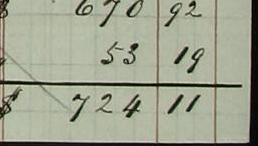 $ 670 92
53 19
$ 724 11